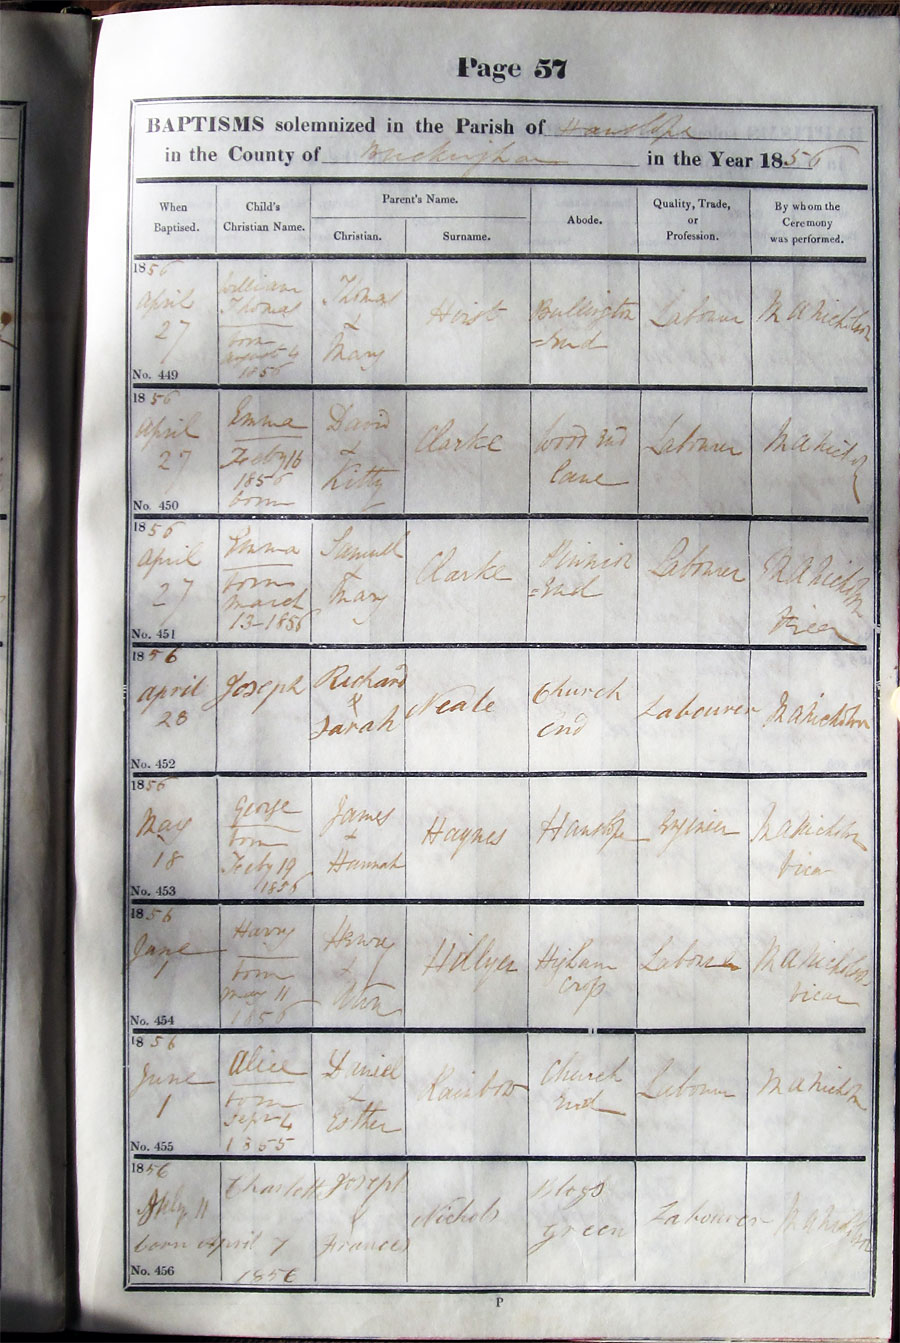 Page 57
BAPTISMS solemnized in the Parish of Hanslope
in the County of Buckingham in the Year 1856
When Baptised.
Child's Christian Name.
Parent's Name.
Christian.
Surname.
Abode.
Quality, Trade, or Profession.
By whom the Ceremony was performed.
1856
April
27
No. 449
William
Thomas
born
August 4
1856
Thomas
&
Mary
Hirst
Bullington
=End
Labourer
M A Nicholson
1856
April
27
No. 450
Emma
Feby 16
1856
born
David
&
Kitty
Clarke
Wood End
Lane
Labourer
M A Nichol
1856
April
27
No. 451
Emma
born
March
13-1856
Samuel
&
Mary
Clarke
=End
Labourer
M A Nicholson
Vicar
1856
April
28
No. 452
Joseph
Richard
&
Sarah
Neale
Church
End
Labourer
M A Nicholson
1856
May
18
No. 453
George
born
Feby 19
1856
James
&
Hannah
Haynes
Hanslope
Engineer
M A Nicholson
Vicar
1856
June
1
No. 454
Harry
born
May 11
1856
Henry
&
Ann
Hillyer
Higham
Cross
Labourer
M A Nicholson
Vicar
1856
June
1
No. 455
Alice
born
Sept 4
1855
Daniel
&
Esther
Rainbow
Church
End
Labourer
M A Nicholson
1856
July 11
born April 7
1856
No. 456
Charlotte
Joseph
&
Frances
Nichols
Green
Labourer
M A Nicholson
P